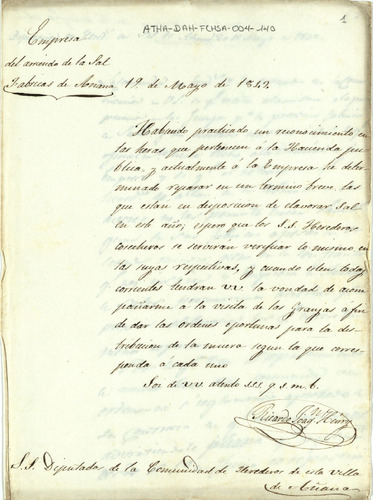 ATHA-DAH-FCHSA-004-140
1
Empresa
del arriendo de la Sal
Fabricas de Añana
19. de Mayo de 1842.
Habiendo practicado un reconocimiento en
las heras que pertenecen á la Hacienda pu-
blica, y actualmente á la Empresa he deter-
minado reparar en un termino breve las
que estan en disposicion de elavorar Sal
en este año; espero que los S.S. Herederos
cosecheros se serviran verificar lo mismo en
las suyas respectivas, y cuando esten todas
corrientes tendran VV. la vondad de acom-
pañarme á la visita de las Granjas á fin
de dar las ordenes oportunas para la dis-
tribucion de la muera segun la que corres-
ponda á cada uno
Soy de VV. atento S.S. q. s. m. b.
Ricardo
S.S. Diputados de la Comunidad de Herederos de esta Villa
de Añana